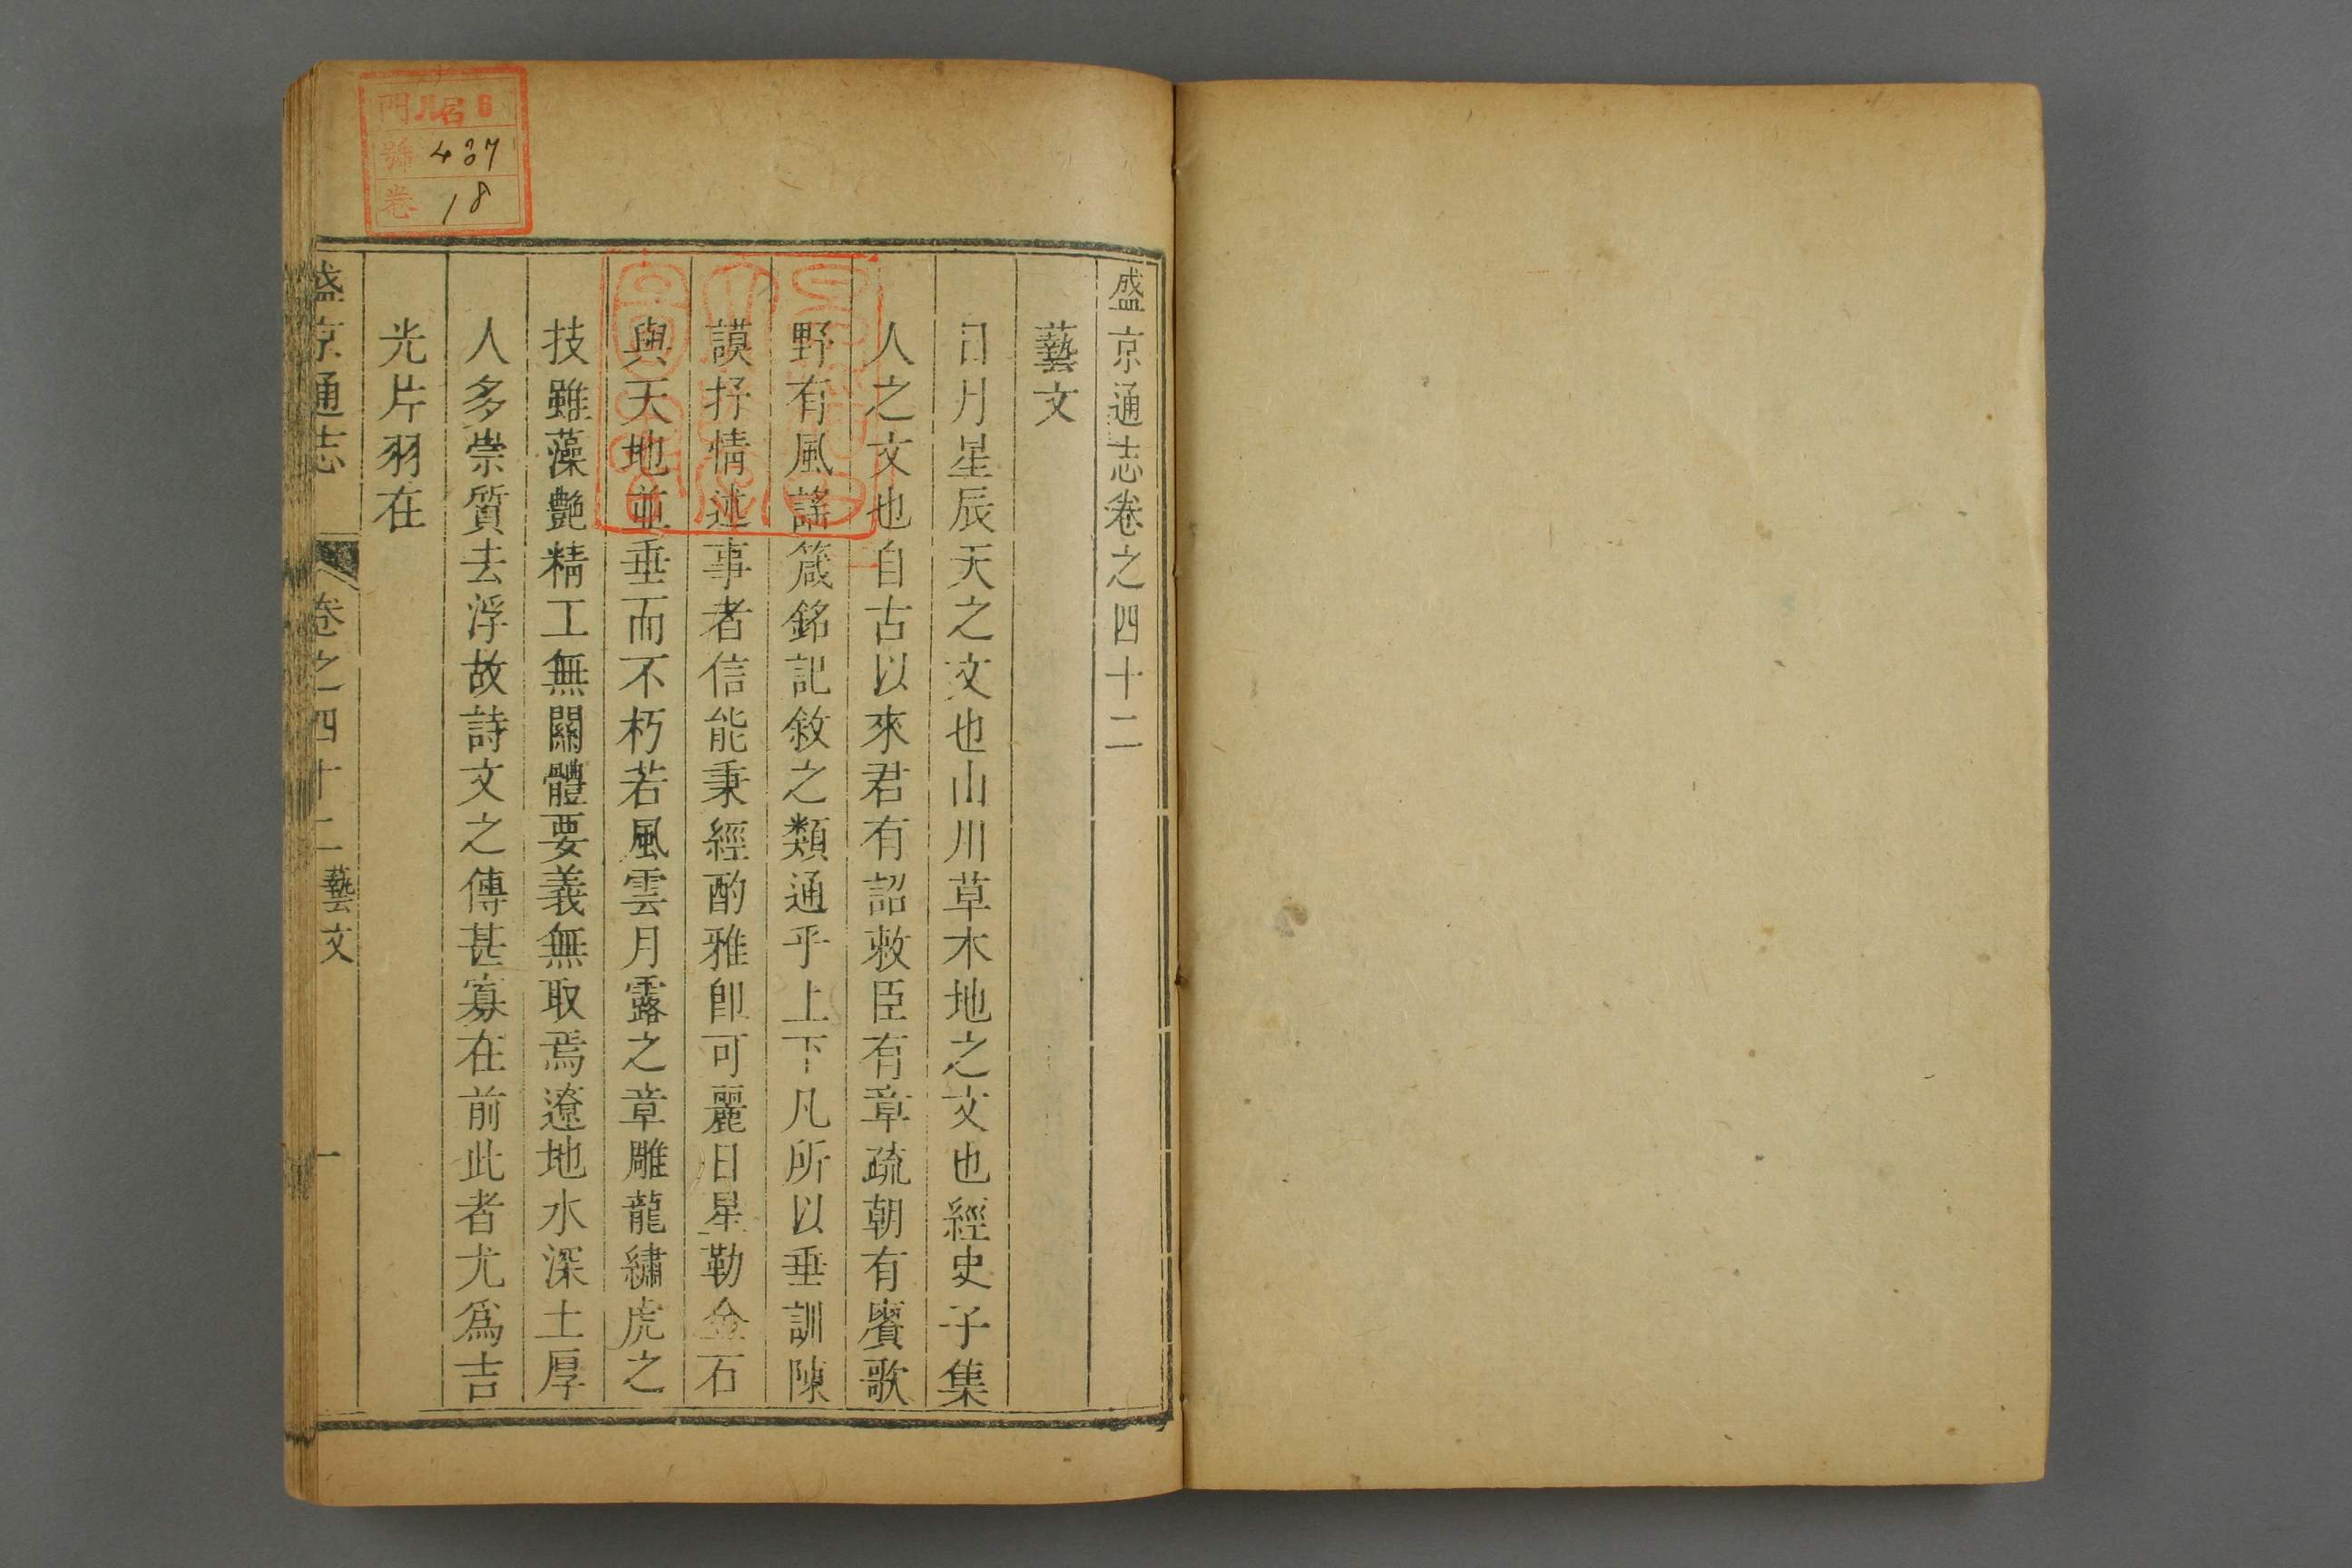 盛京通志卷之四十二
藝文
日月星辰天之文也山川草木地之文也經史子集
人之文也自古以來君有詔敕臣有章疏朝有賡歌
野有風謠箴銘記敘之類通乎上下凡所以垂訓陳
謨抒情述事者信能秉經酌雅卽可麗日星勒金石
與天地並垂而不朽若風雲月露之章雕龍繡虎之
技雖藻艶精工無關體要義無取焉遼地水深土厚
人多崇質去浮故詩文之傳甚寡在前此者尤爲吉
光片羽在
盛京通志 卷之四十二 藝文 一
門 6
號 437
卷 18